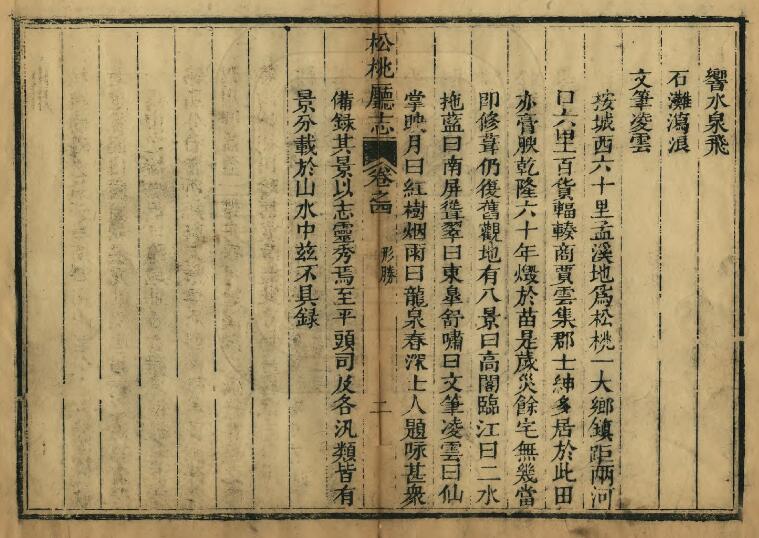 響水泉飛
石灘瀉浪
文筆凌雲
按城西六十里孟溪地爲松桃一大鄉鎮距兩河
口六里百貨輻輳商賈雲集郡士紳多居於此田
亦膏腴乾隆六十年燬於苗是歲災餘宅無幾當
即修葺仍復舊觀地有八景曰高閣臨江曰二水
拖藍曰南屏聳翠曰東皋舒嘯曰文筆凌雲曰仙
掌映月曰紅樹烟雨曰龍泉春深士人題咏甚衆
備録其景以志靈秀焉至平頭司及各汛類皆有
景分載於山水中兹不具録
松桃廳志 卷之四 形勝 二